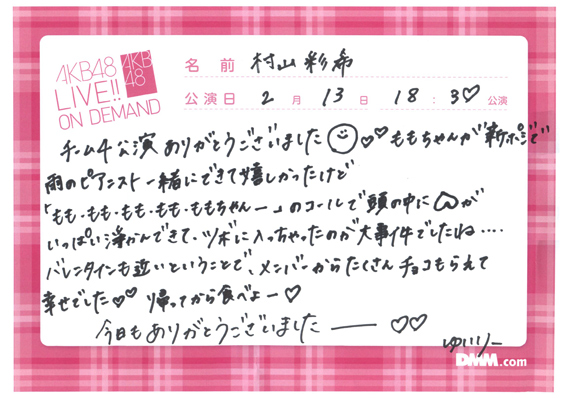 AKB48
LIVE!!
ON DEMAND
AKB
48
名前 村山彩希
公演日 2月13日 18:30公演
チーム4公演ありがとうございました♡♡ももちゃんが新ポジで
雨のピアニスト一緒にできて嬉しかったけど
「もも・もも・もも・もも・ももちゃんー」のコールで頭の中に が
いっぱい浮かんできて、ツボに入っちゃったのが大事件でしたね....
バレンタインも近いということで、メンバーからたくさんチョコもらえて
幸せでした♡♡ 帰ってから食べよー♡
今日もありがとうございましたー ♡♡
ゆいりー
DMM.com